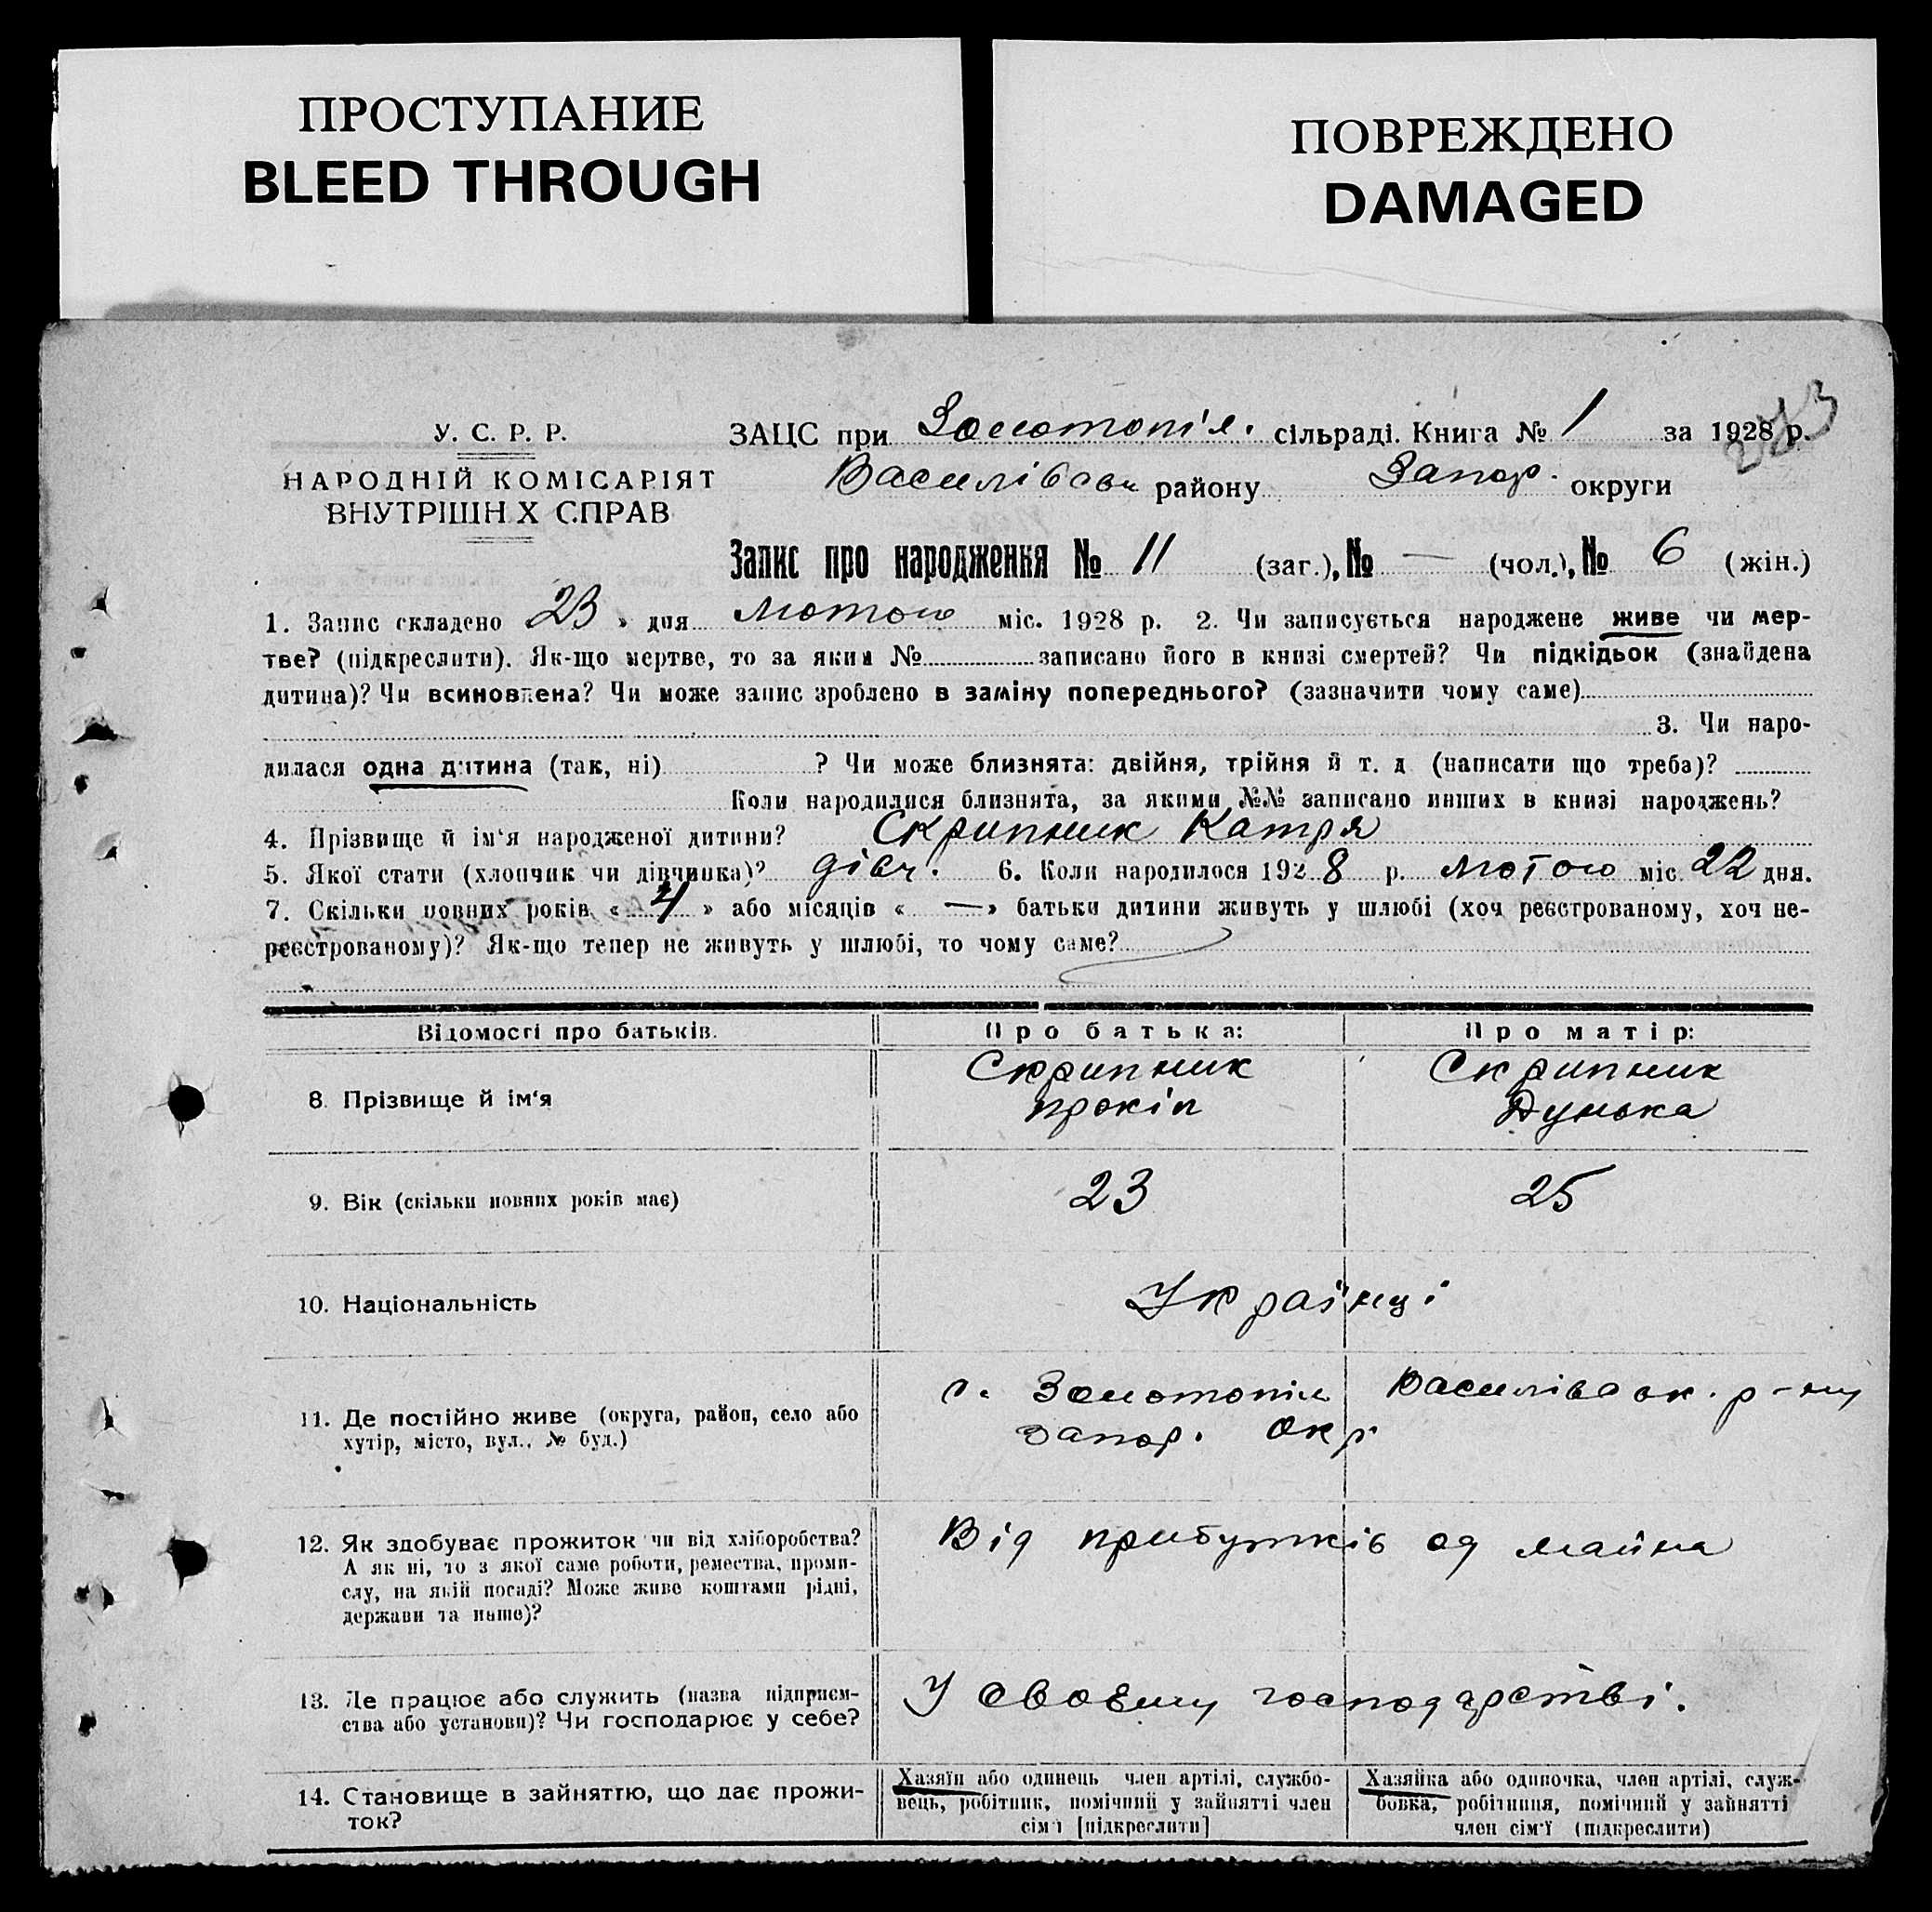 ПРОСТУПАНИЕ
BLEED THROUGH
ПОВРЕЖДЕНО
DAMAGED
У. С. Р. Р.
НАРОДНІЙ КОМІСАРІЯТ
ВНУТРІШН Х СПРАВ
ЗАЦС при Золотопі'л. сільраді. Книга № 1 за 1928 р.
Василівськ району Запор. округи
Запис про народження № 11 (заг.), № — (чол.), № 6 (жін.)
1. Запис складено 23 » дня лютого міс. 1928 р. 2. Чи записується народжене живе чи мер-
тве? (підкреслити). Як-що мертве, то за яким № записано його в книзі смертей? Чи підкідьок (знайдена
дитина)? Чи всиновлена? Чи може запис зроблено в заміну попереднього? (зазначити чому саме)
3. Чи наро-
дилася одна дитина (так, ні) ? Чи може близнята: двійня, трійня й т. д (написати що треба)?
Коли народилися близнята, за якими №№ записано инших в книзі народжень?
4. Прізвище й ім'я народженої дитини? Скрипник Катря
5. Якої стати (хлопчик чи дівчинка)? дівч. 6. Коли народилося 1928 р. лютого міс. 22 дня.
7. Скільки повних років « 4 » або місяців « — » батьки дитини живуть у шлюбі (хоч реєстрованому, хоч не-
реєстрованому)? Як-що тепер не живуть у шлюбі, то чому саме?
Відомості про батьків. Про батька: Про матір:
8. Прізвище й ім'я Скрипник прокіп Скрипник Дунька
9. Вік (скільки повних років має) 23 25
10. Національність Українці
11. Де постійно живе (округа, район, село або
хутір, місто, вул., № буд.)
с. Золотопіл Василівськ. р-ну
Запор. окр.
12. Як здобуває прожиток чи від хліборобства?
А як ні, то з якої саме роботи, ремества, проми-
слу, на якій посаді? Може живе коштами рідні,
держави та инше)?
Від прибутків од майна
13. Де працює або служить (назва підприєм-
ства або установи)? Чи господарює у себе?
У своєму господарстві.
14. Становище в зайняттю, що дає прожи-
ток?
Хазяїн або одинець член артілі, службо-
вець, робітник, помічний у зайнятті член
сім'ї [підкреслити]
Хазяйка або одиночка, член артілі, служ-
бовка, робітниця, помічний у зайнятті
член сім'ї (підкреслити)